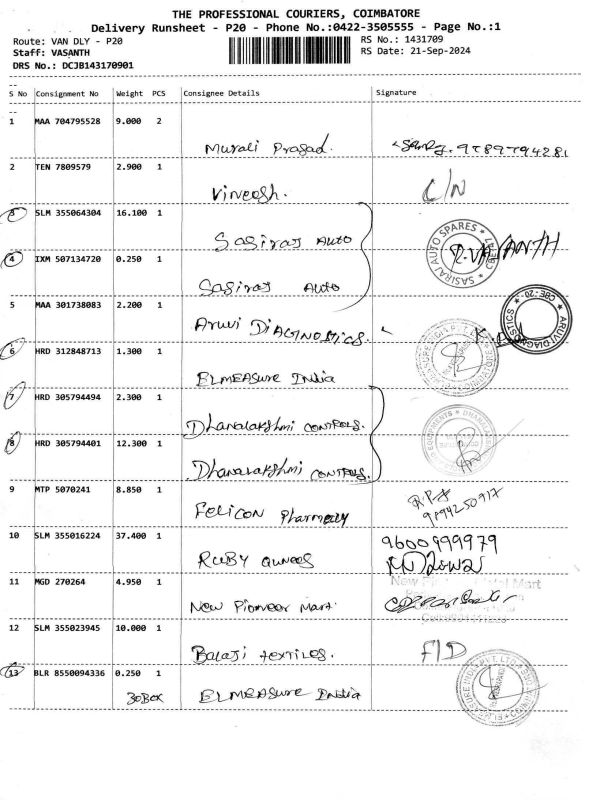 THE PROFESSIONAL COURIERS, COIMBATORE
Delivery Runsheet - P20 - Phone No.:0422-3505555 - Page No.:1
Route: VAN DLY - P20 RS No.: 1431709
Staff: VASANTH RS Date: 21-Sep-2024
DRS No.: DCJB143170901
S No Consignment No Weight PCS Consignee Details Signature
1 MAA 704795528 9.000 2
Murali Prasad.
2 TEN 7809579 2.900 1
Vineesh. C/N
3 SLM 355064304 16.100 1
Sasiraj Auto R.VASANTH
SASIRAJ AUTO SPARES
4 IXM 507134720 0.250 1
Sasiraj Auto
5 MAA 301738083 2.200 1
Aruvi DIAGINOSTICS.
ARUVI DIAGNOSTICS CBE-20
6 HRD 312848713 1.300 1
ELMEASURE India
7 HRD 305794494 2.300 1
Dhanalakshmi CONTROLS.
8 HRD 305794401 12.300 1
Dhanalakshmi CONTROLS.
9 MTP 5070241 8.850 1
Felicon Pharmacy
10 SLM 355016224 37.400 1 9600999979
RUBY
11 MGD 270264 4.950 1
New Pioneer Mart.
12 SLM 355023945 10.000 1
Balaji textiles. F/D
13 BLR 8550094336 0.250 1
30BOX ELMEASURE India